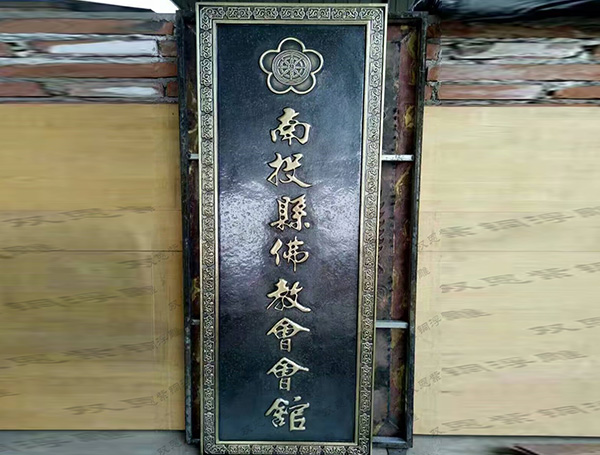 南投縣佛教會會舘